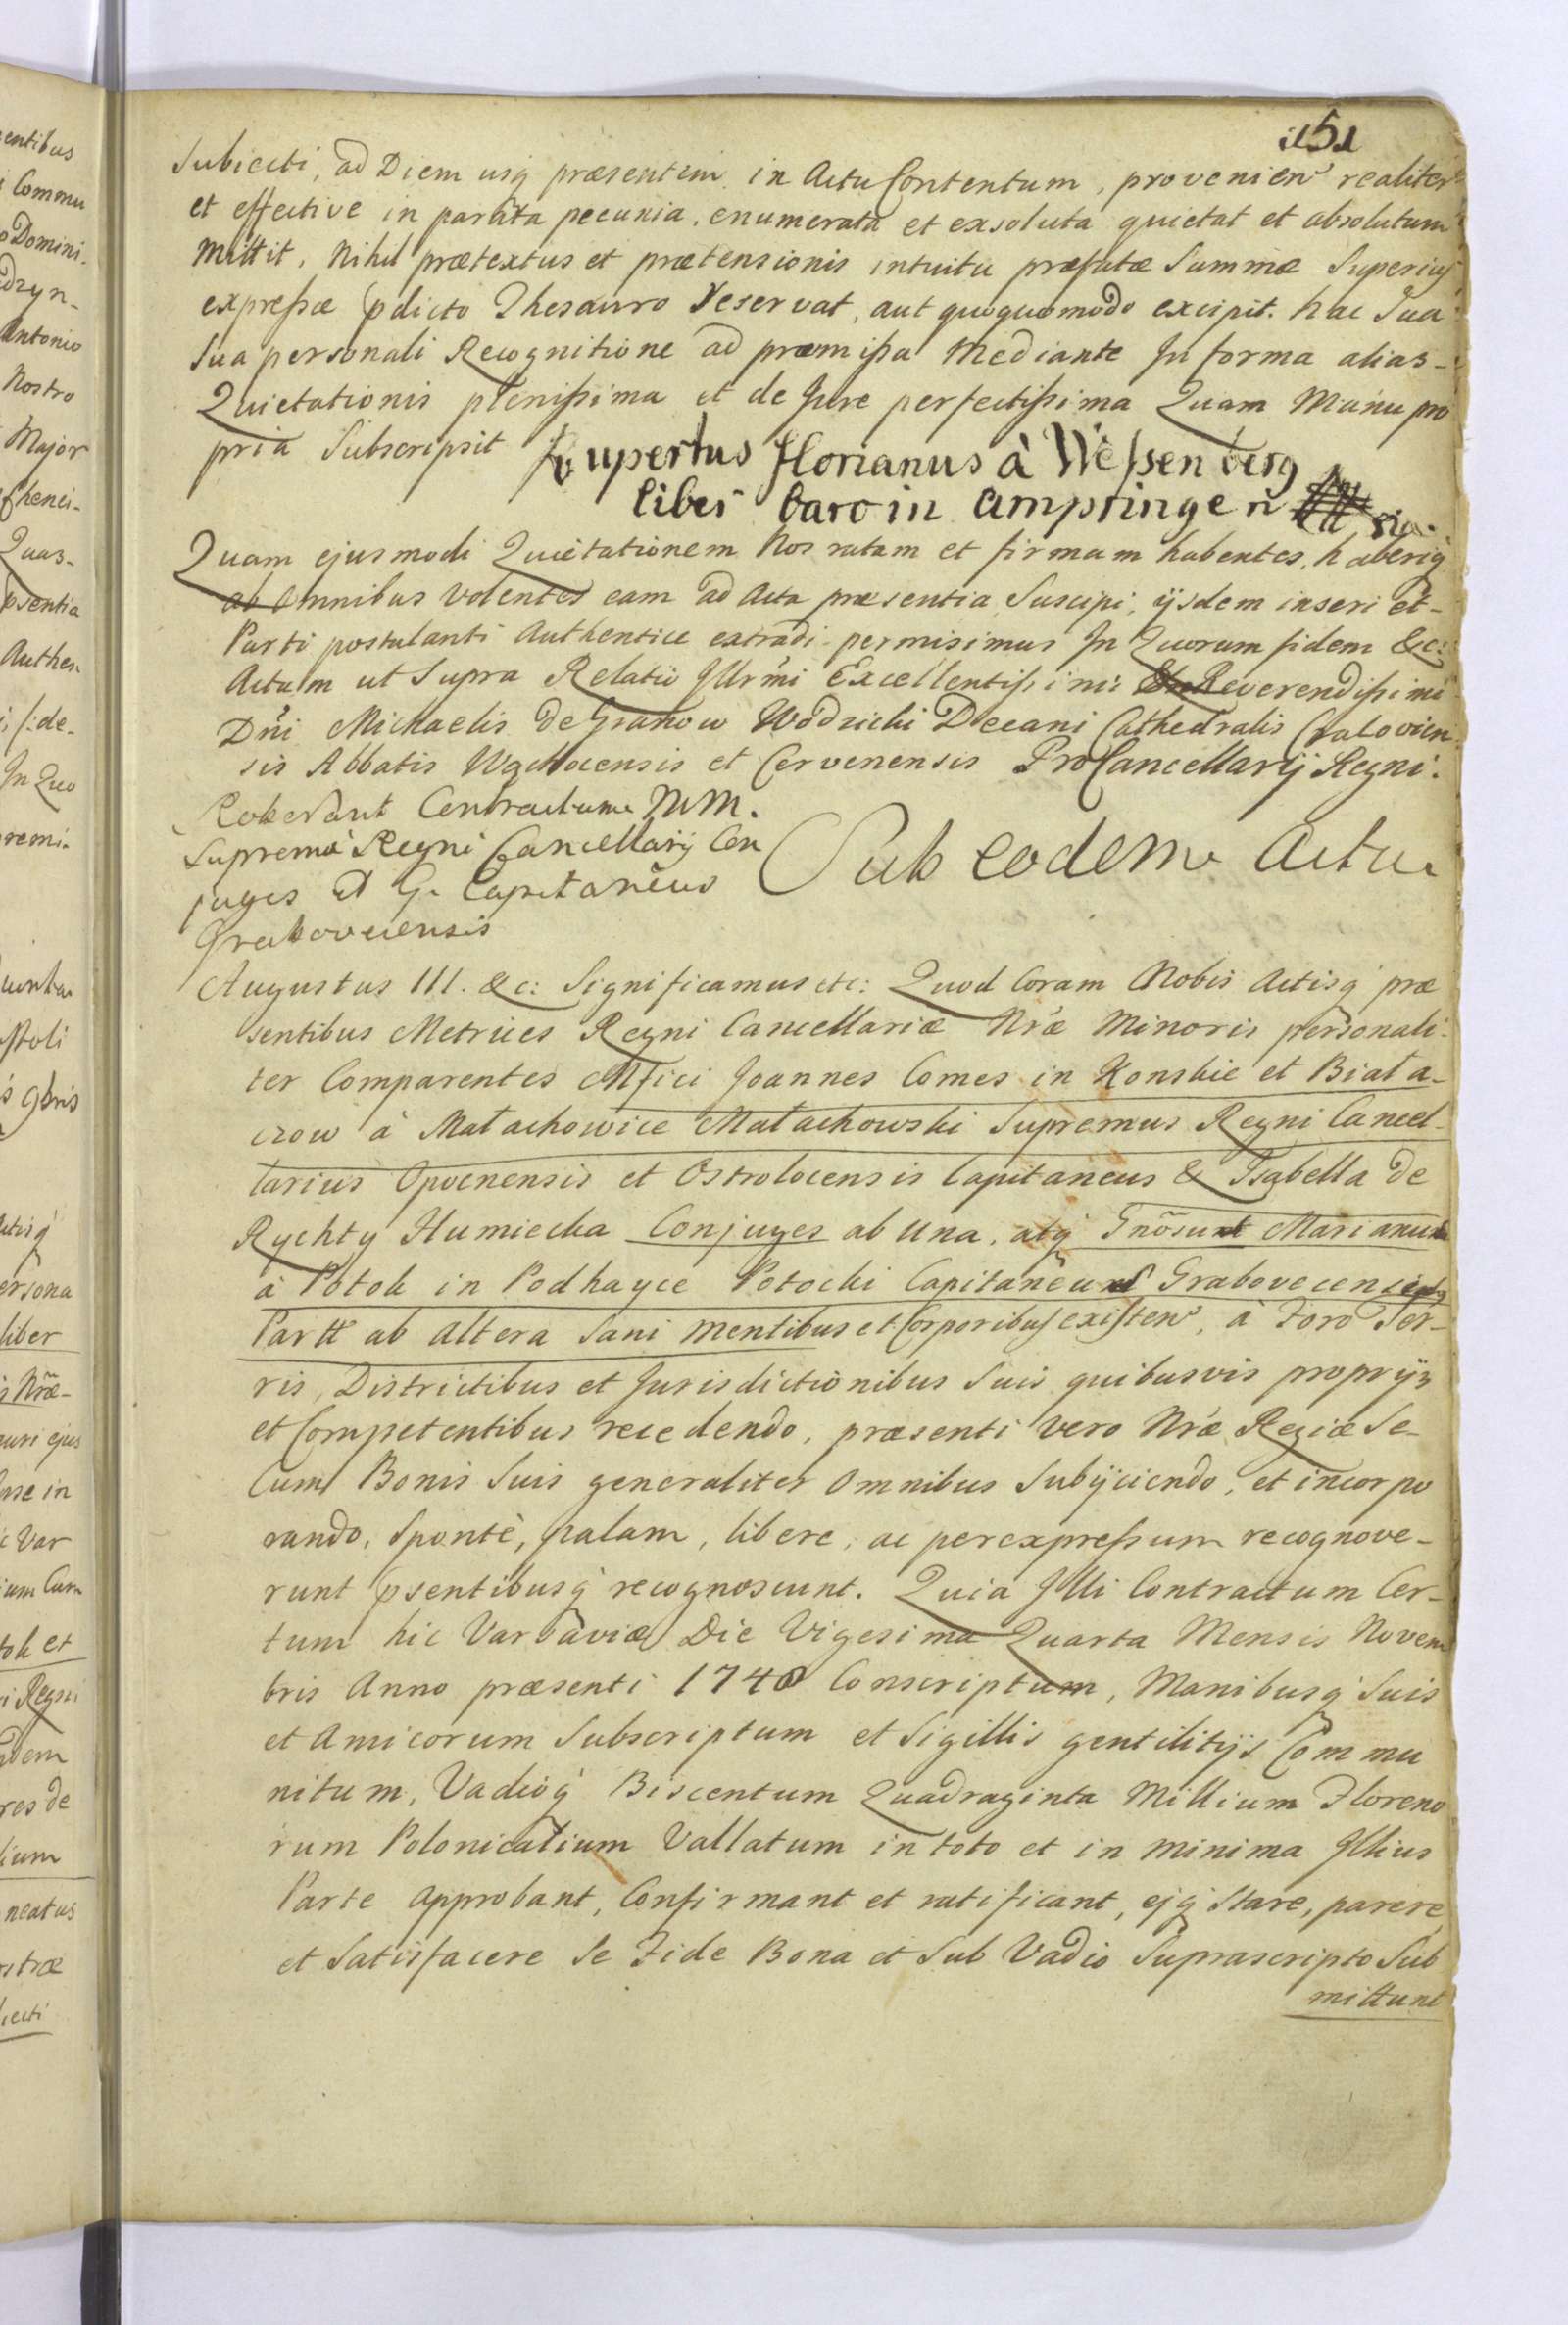 151
Subiecti, ad Diem usq præsentem in Actu Contentum, provenien realiter
et effective in parata pecunia, enumerata et exsoluta quietat et absolutum
mittit, nihil prætextus et prætensionis intuitu præfatæ Summæ Superius
expressæ pdicto Thesauro reservat, aut quoquomodo excipit. hac Sua
Sua personali Recognitione ad præmissa mediante In forma alias-
Quietationis plenissima et de Jure perfectissima Quam Manu pro
pria Subscripsit Rupertus Florianus à Wessenberg
liber baro in Ampringen
Quam ejusmodi Quietationem Nos ratam et firmam habentes, haberiq
ab Omnibus volentes eam ad Acta præsentia Suscipi, ijsdem inseri et-
Parti postulanti Authentice extradi permisimus In Quorum fidem &c:
Actum ut Supra Relatio Illrmi Excellentissimi Reverendissimi
Dni Michaelis de Granow Wodzicki Decani Cathedralis Cracovien
sis Abbatis Wachocensis et Cervenensis ProCancellarij Regni.
Roborant Contractum MM.
Supremi Regni Cancellarij Con
juges et G. Capitaneus
Grabovecensis
Sub eodem Actu
Augustus III. &c: Significamus etc: Quod Coram Nobis Actisq præ
sentibus Metrices Regni Cancellariæ Nræ Minoris personali-
ter Comparentes Mfici Joannes Comes in Konskie et Biała-
czow à Małachowice Małachowski Supremus Regni Cancel-
larius Opocnensis et Ostrolocensis Capitaneus & Isabella de
Rychty Humiecka Conjuges ab una, atq Gnosum Marianum
à Potok in Podhayce Potocki Capitaneum Grabovecensem
Partt ab altera Sani mentibus et Corporibus existen, à Foro Ter-
ris, Districtibus et Jurisdictionibus Suis quibusvis proprijs
et Competentibus recedendo, præsenti vero Nræ Regiæ Se-
Cum Bonis Suis generaliter Omnibus Subijciendo, et incorpo
rando, Sponte, palam, libere, ac perexpressum recognove-
runt psentibusq recognoscunt. Quia Illi Contractum Cer-
tum hic Varsaviæ Die Vigesima Quarta Mensis Novem
bris Anno præsenti 1748 Conscriptum, Manibusq Suis
et Amicorum Subscriptum et Sigillis gentilitijs Commu
nitum, Vadioq Biscentum Quadraginta Millium Floreno
rum Polonicalium Vallatum in toto et in minima Illius
Parte approbant, Confirmant et ratificant, ejq Stare, parere,
et Satisfacere Se Fide Bona et Sub Vadio Suprascripto Sub
mittunt